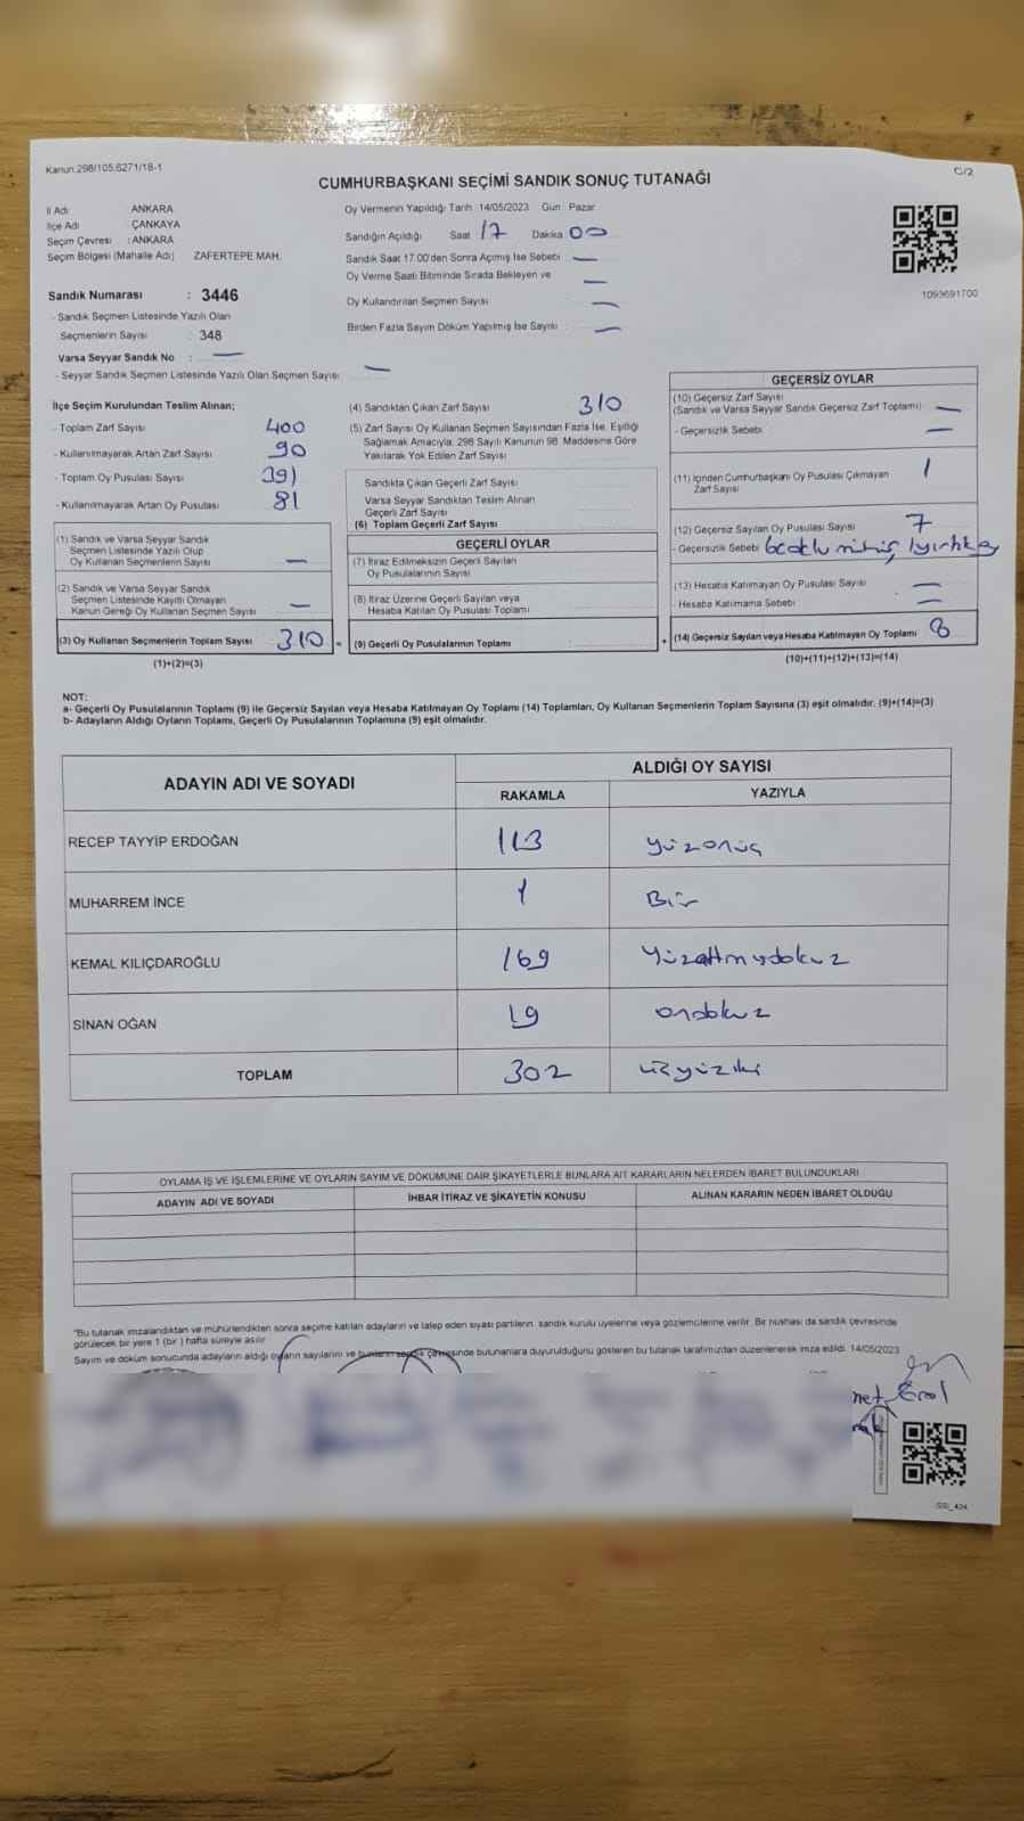 Kanun:298/105.6271/18-1
C/2
CUMHURBAŞKANI SEÇİMİ SANDIK SONUÇ TUTANAĞI
İl Adı ANKARA
İlçe Adı ÇANKAYA
Seçim Çevresi : ANKARA
Seçim Bölgesi (Mahalle Adı) ZAFERTEPE MAH.
Sandık Numarası : 3446
- Sandık Seçmen Listesinde Yazılı Olan
Seçmenlerin Sayısı : 348
Varsa Seyyar Sandık No : —
- Seyyar Sandık Seçmen Listesinde Yazılı Olan Seçmen Sayısı —
Oy Vermenin Yapıldığı Tarih 14/05/2023 Gün Pazar
Sandığın Açıldığı Saat 17 Dakika 00
Sandık Saat 17.00'den Sonra Açımış İse Sebebi —
Oy Verme Saati Bitiminde Sırada Bekleyen ve —
Oy Kullandırılan Seçmen Sayısı —
Birden Fazla Sayım Döküm Yapılmış İse Sayısı —
1093691700
İlçe Seçim Kurulundan Teslim Alınan;
- Toplam Zarf Sayısı 400
- Kullanılmayarak Artan Zarf Sayısı 90
- Toplam Oy Pusulası Sayısı 391
- Kullanılmayarak Artan Oy Pusulası 81
(1) Sandık ve Varsa Seyyar Sandık
Seçmen Listesinde Yazılı Olup
Oy Kullanan Seçmenlerin Sayısı —
(2) Sandık ve Varsa Seyyar Sandık
Seçmen Listesinde Kayıtlı Olmayan
Kanun Gereği Oy Kullanan Seçmen Sayısı —
(3) Oy Kullanan Seçmenlerin Toplam Sayısı 310 =
(1)+(2)=(3)
(4) Sandıktan Çıkan Zarf Sayısı 310
(5) Zarf Sayısı Oy Kullanan Seçmen Sayısından Fazla İse, Eşitliği
Sağlamak Amacıyla, 298 Sayılı Kanunun 98. Maddesine Göre
Yakılarak Yok Edilen Zarf Sayısı
Sandıkta Çıkan Geçerli Zarf Sayısı
Varsa Seyyar Sandıktan Teslim Alınan
Geçerli Zarf Sayısı
(6) Toplam Geçerli Zarf Sayısı
GEÇERLİ OYLAR
(7) İtiraz Edilmeksizin Geçerli Sayılan
Oy Pusulalarının Sayısı
(8) İtiraz Üzerine Geçerli Sayılan veya
Hesaba Katılan Oy Pusulası Toplamı
(9) Geçerli Oy Pusulalarının Toplamı +
GEÇERSİZ OYLAR
(10) Geçersiz Zarf Sayısı
(Sandık ve Varsa Seyyar Sandık Geçersiz Zarf Toplamı) —
- Geçersizlik Sebebi —
(11) İçinden Cumhurbaşkanı Oy Pusulası Çıkmayan 1
Zarf Sayısı
(12) Geçersiz Sayılan Oy Pusulası Sayısı 7
- Geçersizlik Sebebi
(13) Hesaba Katılmayan Oy Pusulası Sayısı —
- Hesaba Katılmama Sebebi —
(14) Geçersiz Sayılan veya Hesaba Katılmayan Oy Toplamı 8
(10)+(11)+(12)+(13)=(14)
NOT:
a- Geçerli Oy Pusulalarının Toplamı (9) ile Geçersiz Sayılan veya Hesaba Katılmayan Oy Toplamı (14) Toplamları, Oy Kullanan Seçmenlerin Toplam Sayısına (3) eşit olmalıdır. (9)+(14)=(3)
b- Adayların Aldığı Oyların Toplamı, Geçerli Oy Pusulalarının Toplamına (9) eşit olmalıdır.
ADAYIN ADI VE SOYADI ALDIĞI OY SAYISI
RAKAMLA YAZIYLA
RECEP TAYYİP ERDOĞAN 113 yüzonüç
MUHARREM İNCE 1 Bir
KEMAL KILIÇDAROĞLU 169 Yüzaltmışdokuz
SİNAN OĞAN 19 ondokuz
TOPLAM 302 üçyüziki
OYLAMA İŞ VE İŞLEMLERİNE VE OYLARIN SAYIM VE DÖKÜMÜNE DAİR ŞİKAYETLERLE BUNLARA AİT KARARLARIN NELERDEN İBARET BULUNDUKLARI
ADAYIN ADI VE SOYADI İHBAR İTİRAZ VE ŞİKAYETİN KONUSU ALINAN KARARIN NEDEN İBARET OLDUĞU
"Bu tutanak imzalandıktan ve mühürlendikten sonra seçime katılan adayların ve talep eden siyasi partilerin, sandık kurulu üyelerine veya gözlemcilerine verilir. Bir nüshası da sandık çevresinde
görülecek bir yere 1 (bir ) hafta süreyle asılır
Sayım ve döküm sonucunda adayların aldığı oyların sayılarını ve bunların sandık çevresinde bulunanlara duyurulduğunu gösteren bu tutanak tarafımızdan düzenlenerek imza edildi. 14/05/2023
net Erol